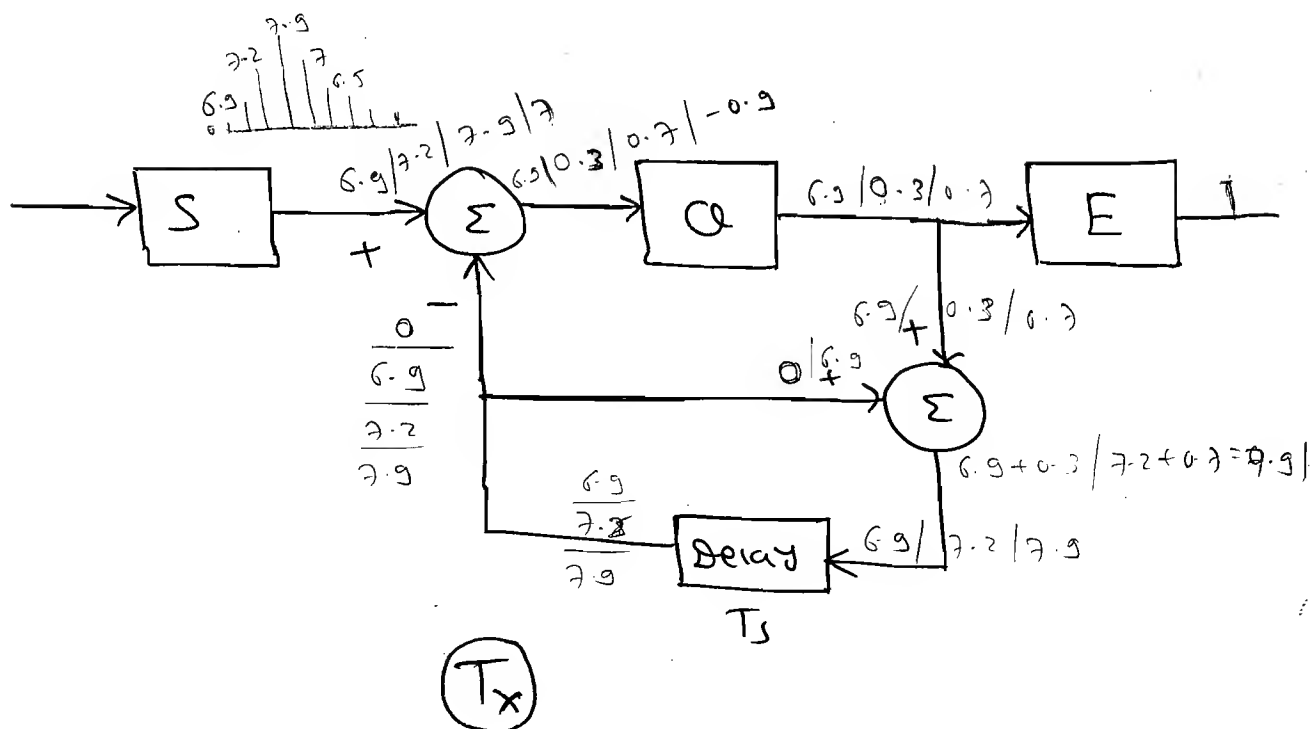 7.9
7.2
7
6.5
6.9
0
6.9|7.2|7.9|7
6.9|0.3|0.7|-0.9
S
+
Σ
Q
6.9/0.3/0.7
E
−
0
6.9
7.2
7.9
6.9/0.3/0.7
+
0|6.9
+
Σ
6.9+0.3/7.2+0.7=7.9|
6.9
7.2
7.9
Delay
6.9/7.2/7.9
Ts
Tx